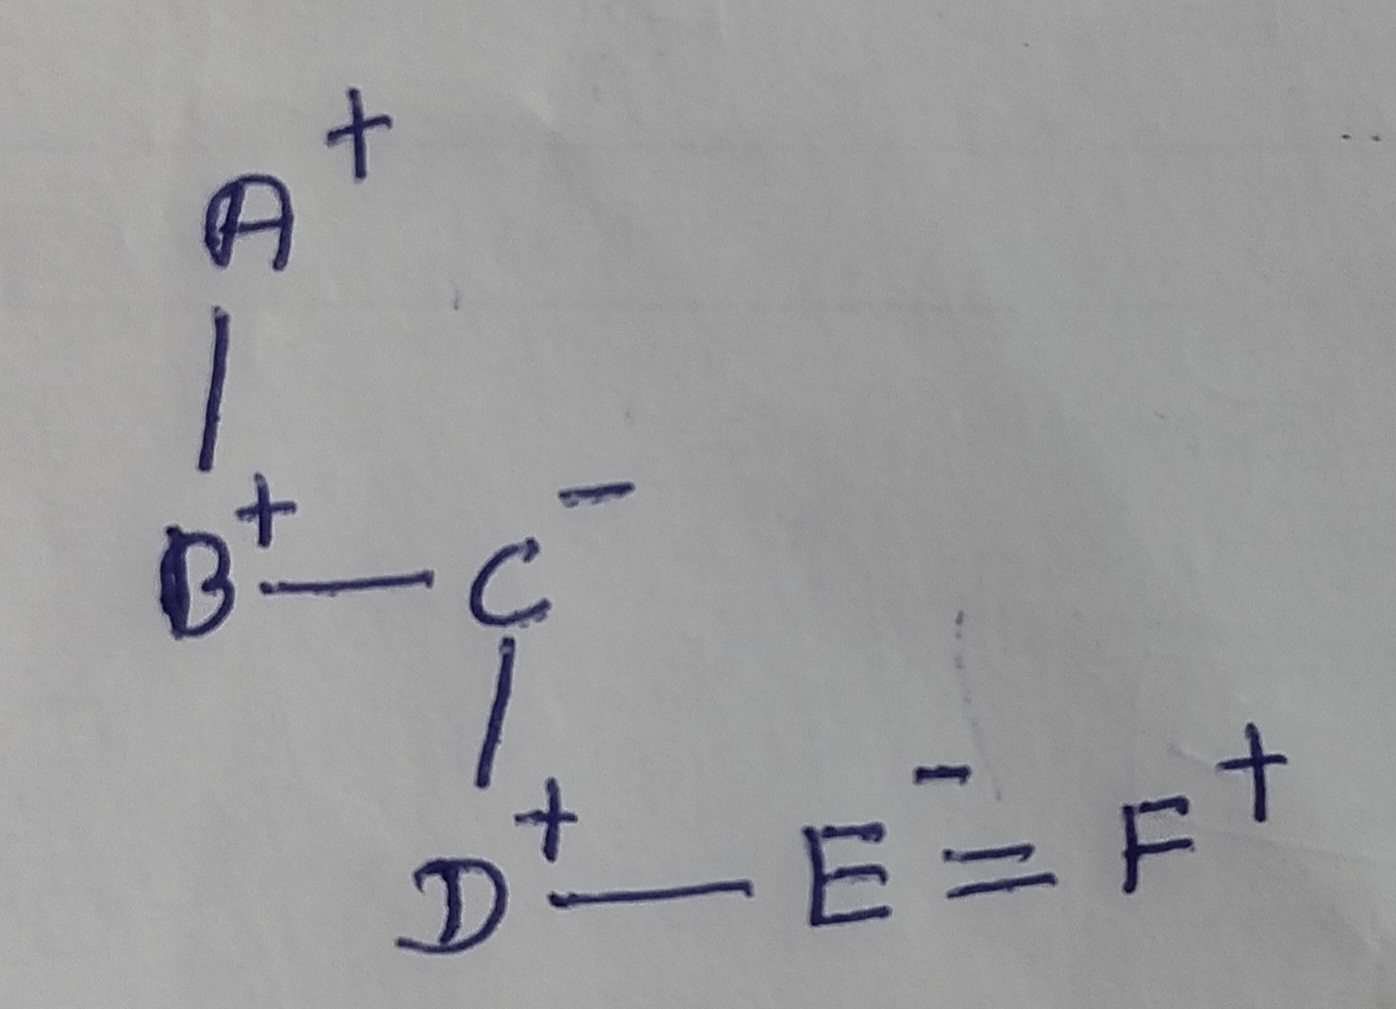 A⁺
|
B⁺ — C⁻
|
D⁺ — E⁻ = F⁺